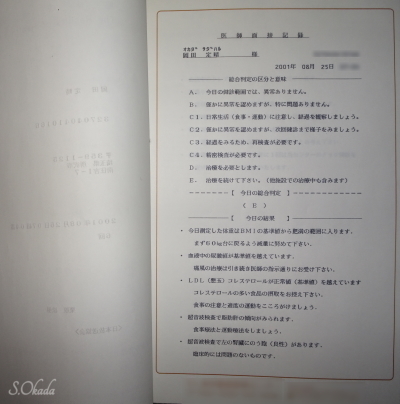 医師面接記録
オカダ サダハル
岡田 定晴 様
2001年 08月 25日
総合判定の区分と意味
A. 今日の検診範囲では、異常ありません。
B. 僅かに異常を認めますが、特に問題ありません。
C1. 日常生活（食事・運動）に注意し、経過を観察しましょう。
C2. 僅かに異常を認めますが、次回健診まで様子をみましょう。
C3. 経過をみるため、再検査が必要です。
C4. 精密検査が必要です。
D. 治療を必要とします。
E. 治療を続けて下さい。（他施設での治療中も含みます）
【 今日の総合判定 】
（ E ）
【 今日の結果 】
・ 今日測定した体重はBMIの基準値から肥満の範囲に入ります。
まず60kg台に戻るよう減量に努めて下さい。
・ 血液中の尿酸値が基準値を越えています。
痛風の治療は引き続き医師の指示通りにお受け下さい。
・ LDL（悪玉）コレステロールが正常値（基準値）を越えています
コレステロールの多い食品の摂取をお控え下さい。
食事の注意と適度の運動をこころがけましょう。
・ 超音波検査で脂肪肝の傾向がみられます。
食事療法と運動療法をしましょう。
・ 超音波検査で左の腎臓にのう胞（良性）があります。
臨床的には問題のないものです。
S.Okada